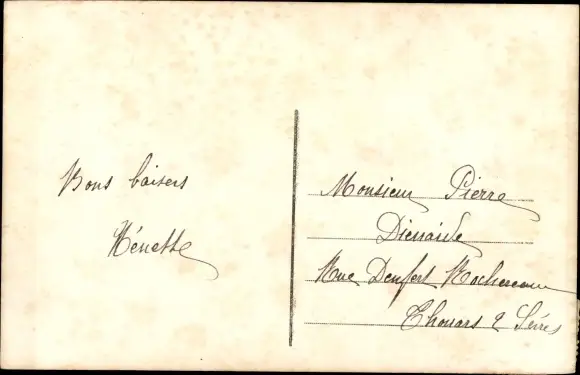 Bons baisers
Ménette
Monsieur Pierre
Dieuaide
Rue Denfert Rochereau
Thouars 2 Sèvres